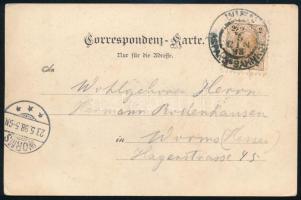 Correspondenz-Karte.
Nur für die Adresse.
An
Wohlgeboren Herrn
Hermann Rodenhausen
in Worms (Hessen)
Hagenstrasse 45
WORMS
23.5.98.5-6N